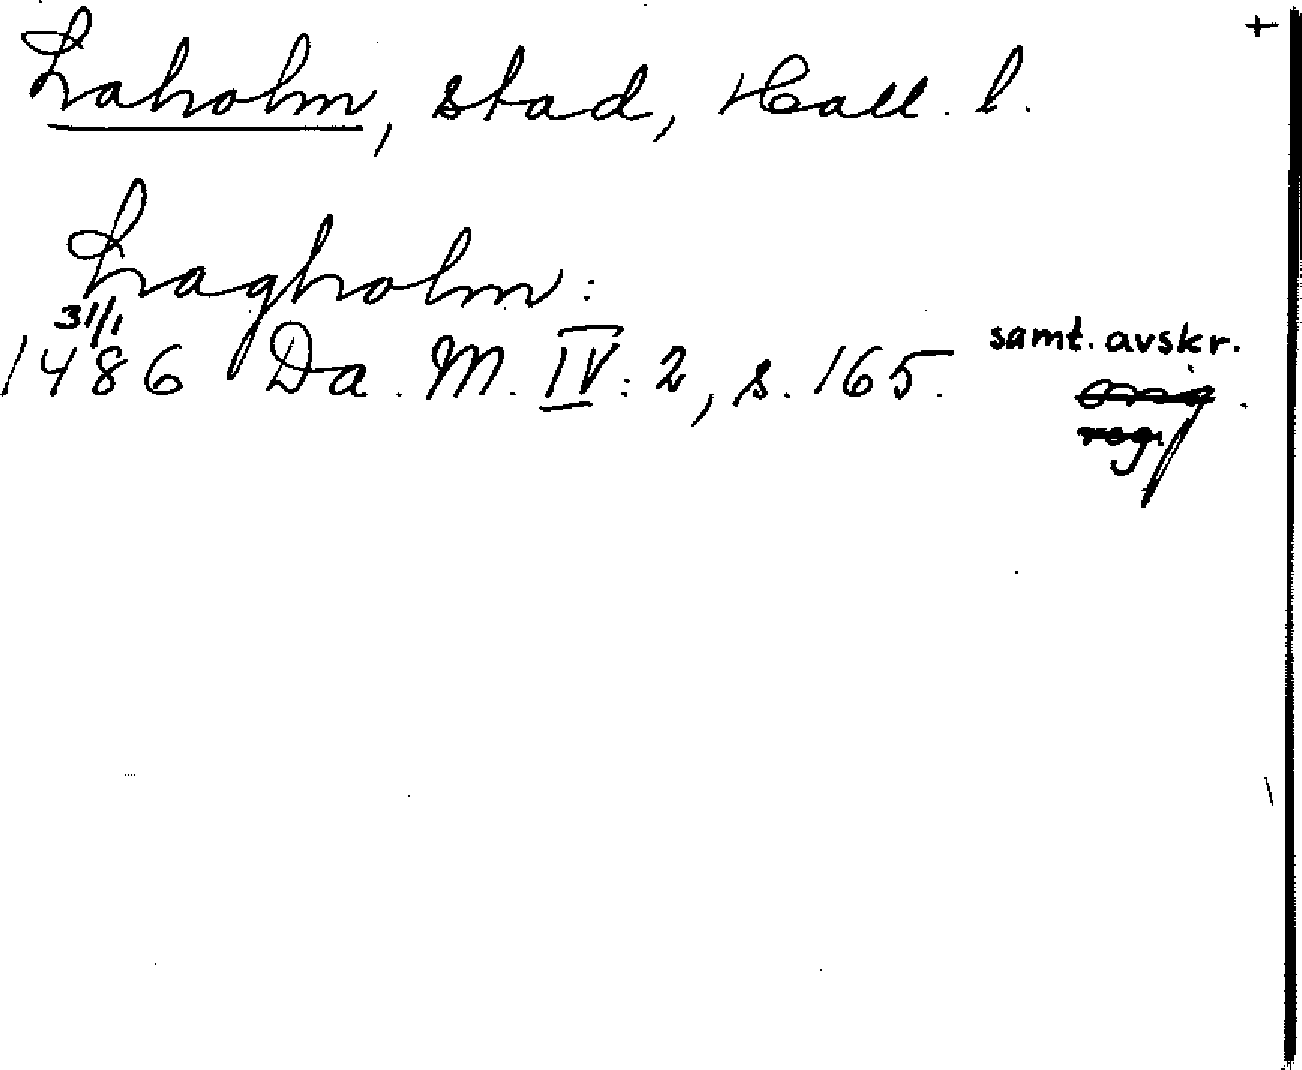 +
Laholm, stad, Hall. l.
Lagholm:
31/1
1486 Da. M. IV: 2, s. 165. samt. avskr.